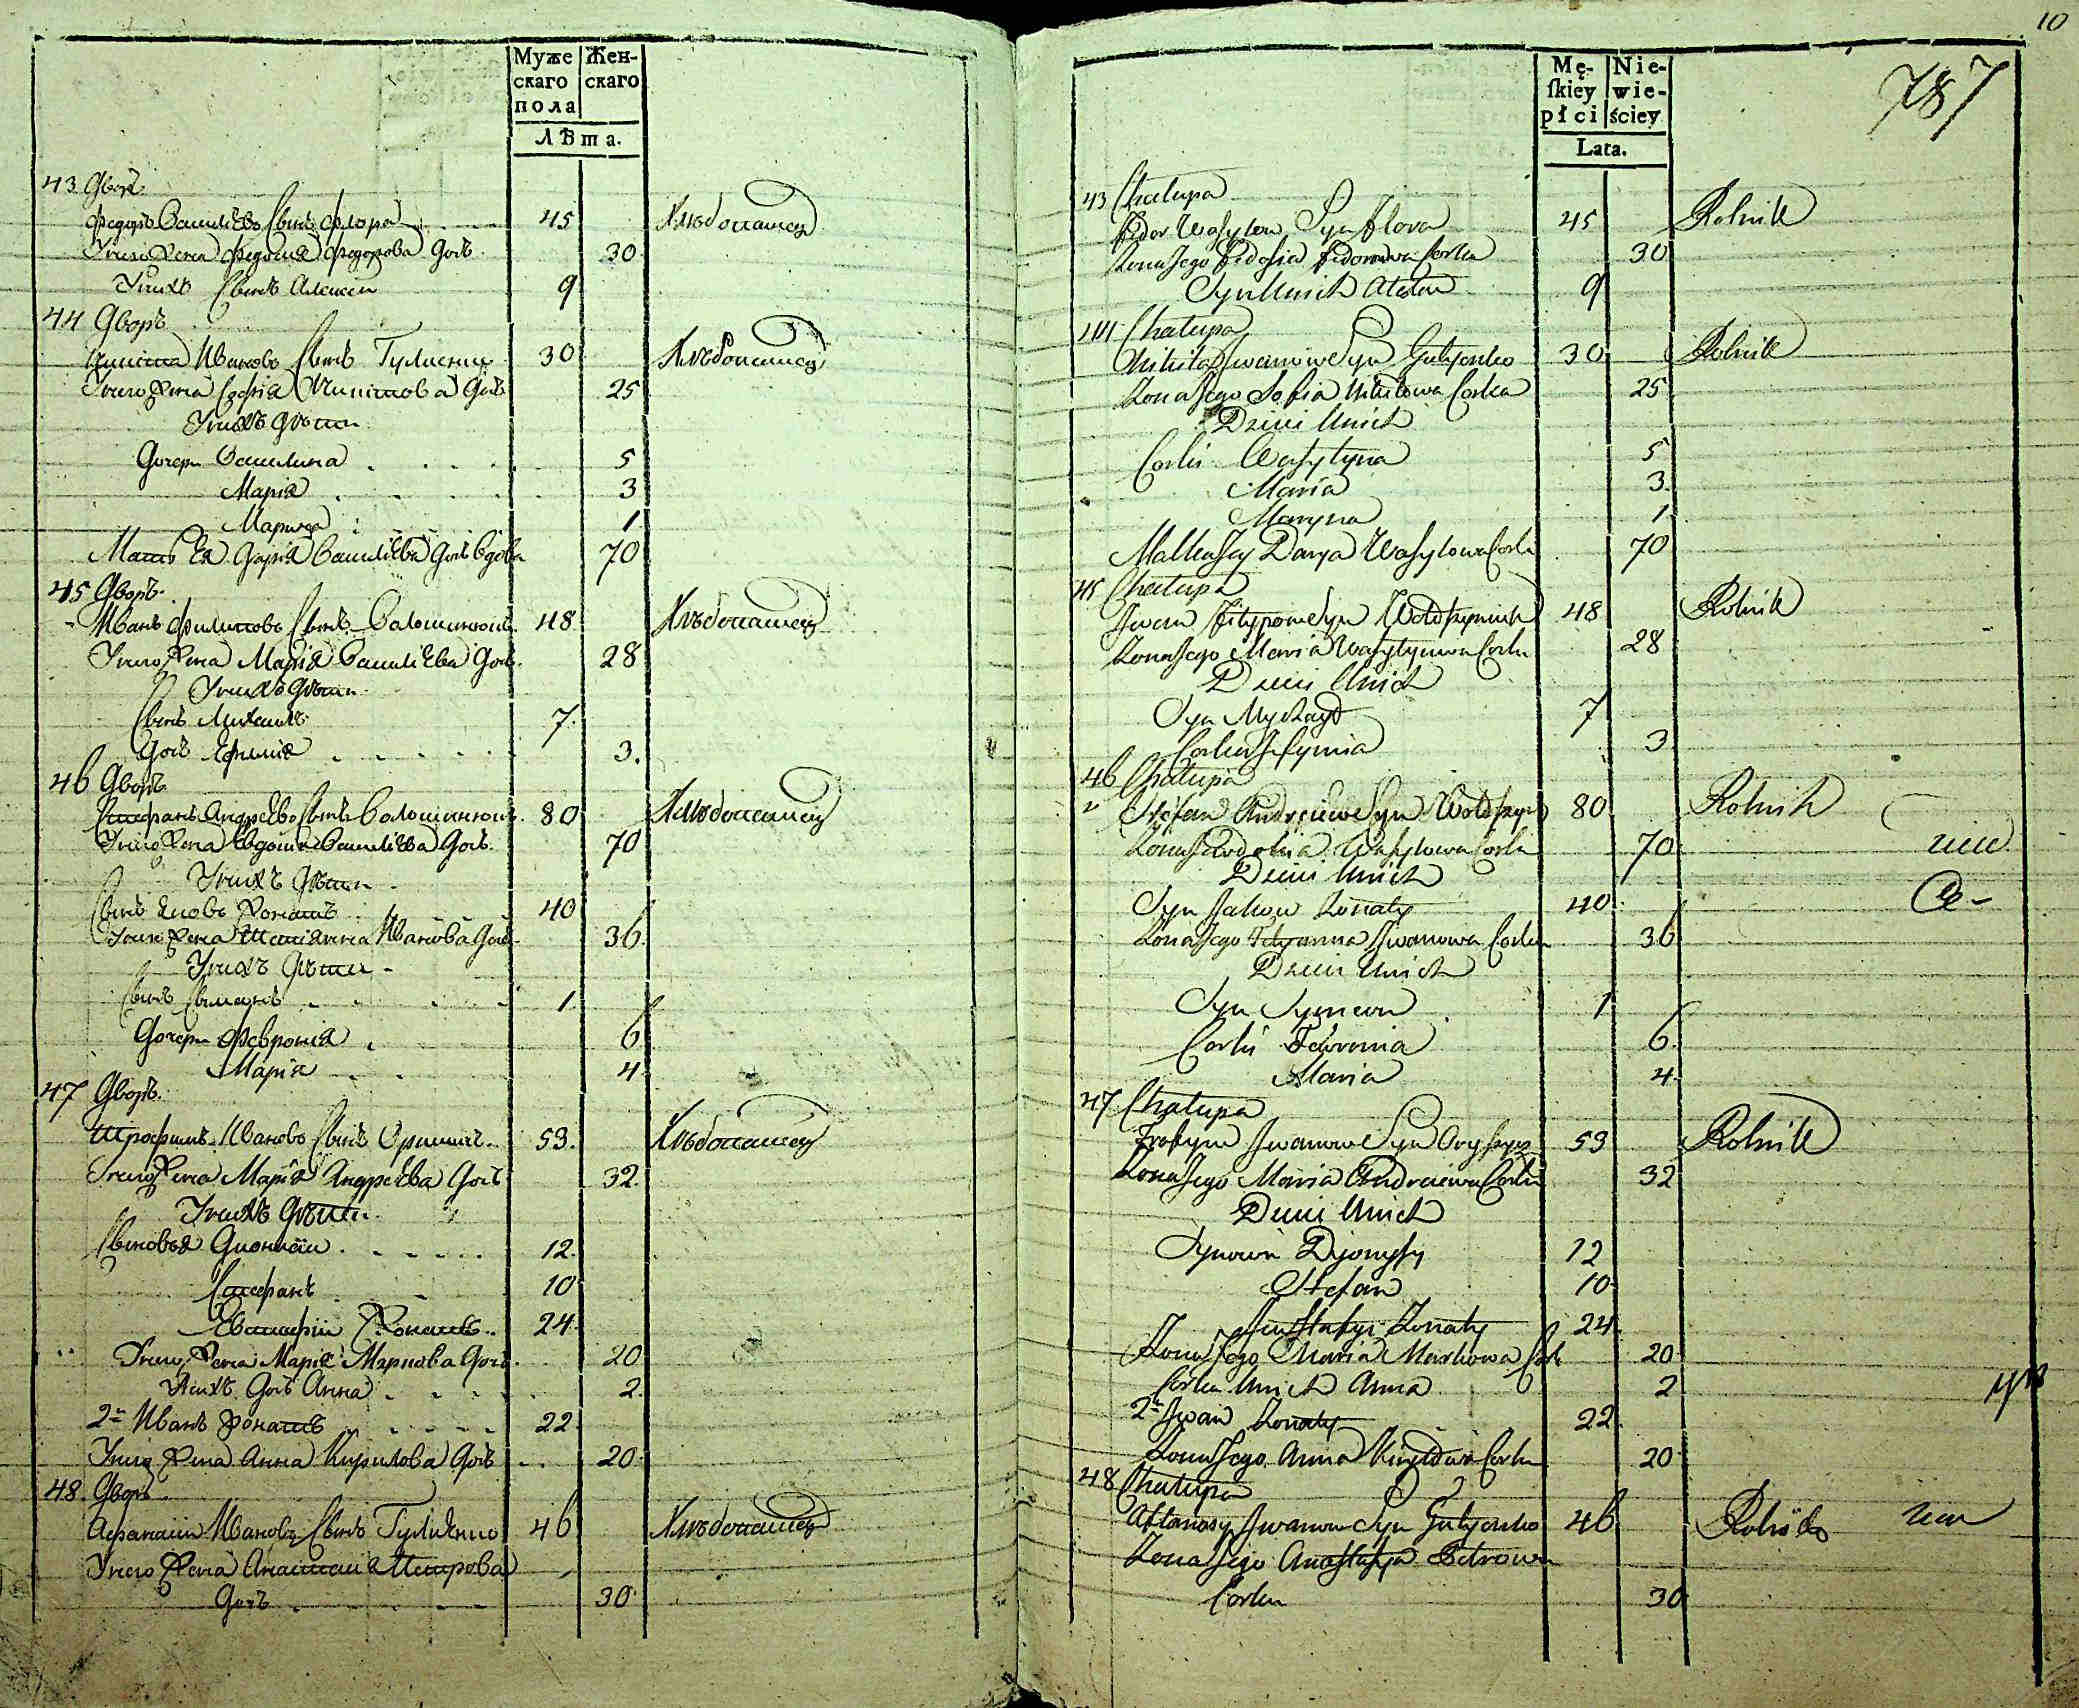 Муже
скаго
пола
Жен-
скаго
ЛѢта.
43 Дворъ
Федоръ Василѣевъ Сынъ Флора 45 Хлебопашец
Унего Жена Федосия Федорова Дочь 30
Унихъ Сынъ Алексеи 9
44 Дворъ
Никита Ивановъ Сынъ Гулценко 30 Хлебопашец
Унего Жена София Никитова Дочь 25
Унихъ дѣти
Дочери Василина 5
Мария 3
Марина 1
Мать Ея Дария Василѣева Дочь Вдова 70
45 Дворъ
Иванъ Филиповъ Сынъ 48 Хлебопашец
Унего Жена Мария Василѣева Дочь 28
Унихъ дѣти
Сынъ Михаилъ 7
Дочь Ефимия 3.
46 Дворъ
Стефанъ Андрѣевъ Сынъ 80 Хлебопашец
Унего Жена Евдокия Василѣева Дочь 70
Унихъ дѣти
Сынъ Яковъ Жонатъ 40
Унего Жена Татиянна Иванова Дочь 36
Унихъ дѣти
Сынъ 1
Дочери Феврония 6
Мария 4
47 Дворъ
Трофимъ Ивановъ Сынъ 53. Хлебопашец
Унего Жена Мария Андрѣева Дочь 32
Унихъ дѣти
Сыновья Дионисии 12.
Стефанъ 10
Евстафии Жонатъ 24
Унего Жена Мария Маркова Дочь 20
Унихъ Дочь Анна 2
2й Иванъ Жонатъ 22
Унего Жена Анна Кирилова Дочь 20
48 Дворъ
Афанасии Ивановъ Сынъ Гулиенко 46 Хлебопашец
Унего Жена Анастасия Петрова
Дочь 30
10
787
Mę-
skiey
płci
Nie-
wie-
ściey
Lata.
43 Chałupa
Fedor Wasylow Syn Flora 45 Rolnik
Zona Jego Fedosia Fedorowa Corka 30
Syn Unich 9
44 Chałupa
Nikita Jwanow Syn Gulyenko 30 Rolnik
Zona Jego Sofia Nikitowa Corka 25
Dzieci Unich
Corki Wasylyna 5
Maria 3
Maryna 1
Matka Jey Darya Wasylowa Corka 70
45 Chałupa
Jwan Filypow Syn 48 Rolnik
Zona Jego Maria Corka 28
Dzieci Unich
Syn Mychayło 7
Corka Jefymia 3
46 Chałupa
Stefan Andreiew Syn 80 Rolnik
Zona Wasylowa Corka 70
Dzieci Unich
Syn Jakow Zonaty 40
Zona Jego Tetyanna Jwanowa Corka 36
Dzieci Unich
Syn Symeon 1
Corki Fewronia 6
Maria 4
47 Chałupa
Trofym Jwanow Syn 53 Rolnik
Zona Jego Maria Andreiewa Corka 32
Dzieci Unich
Synowie Dyonysy 12
Stefan 10
Jewstafyi Zonaty 24
Zona Jego Maria Markowa Corka 20
Corka Unich Anna 2
2. Jwan Zonaty 22
Zona Jego Anna Corka 20
48 Chałupa
Aftanasy Jwanow Syn Gulyenko 46 Rolnik
Zona Jego Anastazya Petrowa
Corka 30